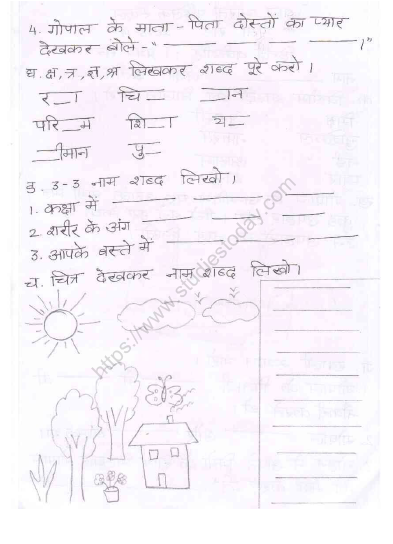 4. गोपाल के माता-पिता दोस्तों का प्यार
देखकर बोले-" ___ ___ ___ ___।"
घ. क्ष, त्र, ज्ञ, श्र लिखकर शब्द पूरे करो।
र__ा चि__ __ान
परि__म शि__ा य__
__ीमान पु__
ङ. ३-३ नाम शब्द लिखो।
1. कक्षा में ___ ___ ___
2. शरीर के अंग ___ ___ ___
3. आपके बस्ते में ___ ___ ___
च. चित्र देखकर नाम शब्द लिखो।
https://www.studiestoday.com